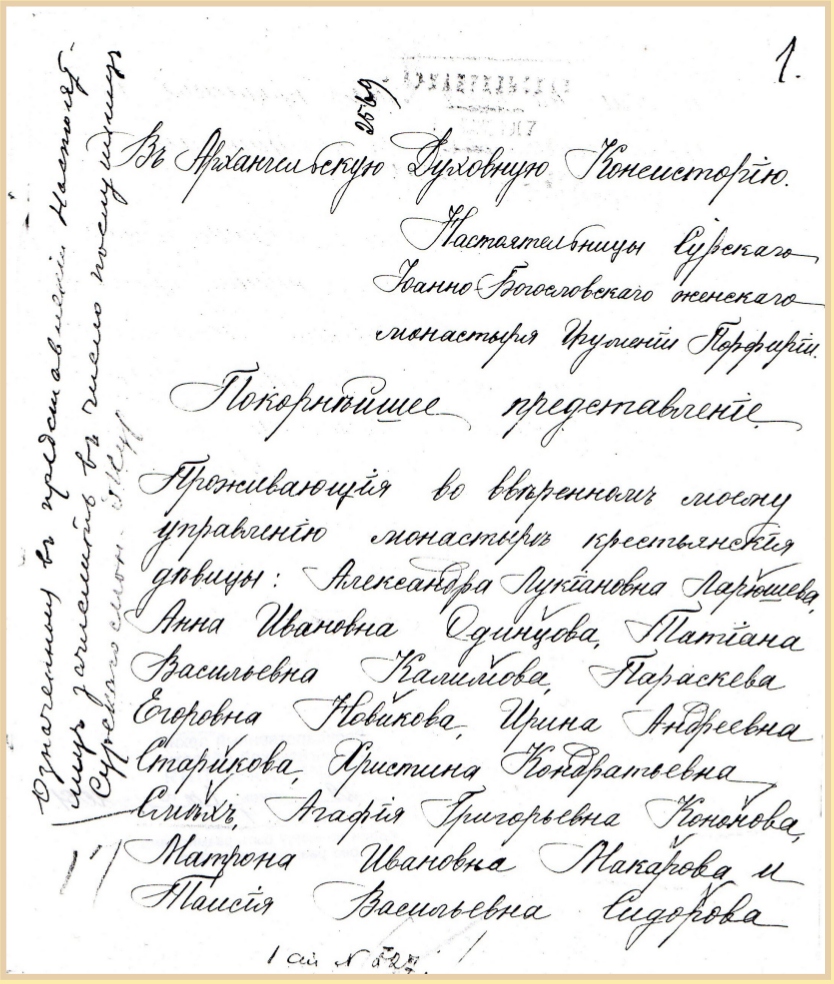 1.
2569
Въ Архангельскую Духовную Консисторію.
Настоятельницы Сурскаго
Іоанно-Богословскаго женскаго
монастыря Игуменіи Порфиріи.
Покорнѣйшее представленіе
Проживающія во ввѣренномъ моему
управленію монастырѣ крестьянскія
дѣвицы: Александра Лукіановна Ларюшева,
Анна Ивановна Одинцова, Татіана
Васильевна Калимова, Параскева
Егоровна Новикова, Ирина Андреевна
Старикова, Христина Кондратьевна
Смѣхъ, Агафія Григорьевна Кононова,
Матрона Ивановна Макарова и
Таисія Васильевна Сидорова
Означенныхъ въ представленіи Настоятель-
ницы зачислить въ число послушницъ
Сурскаго мон.